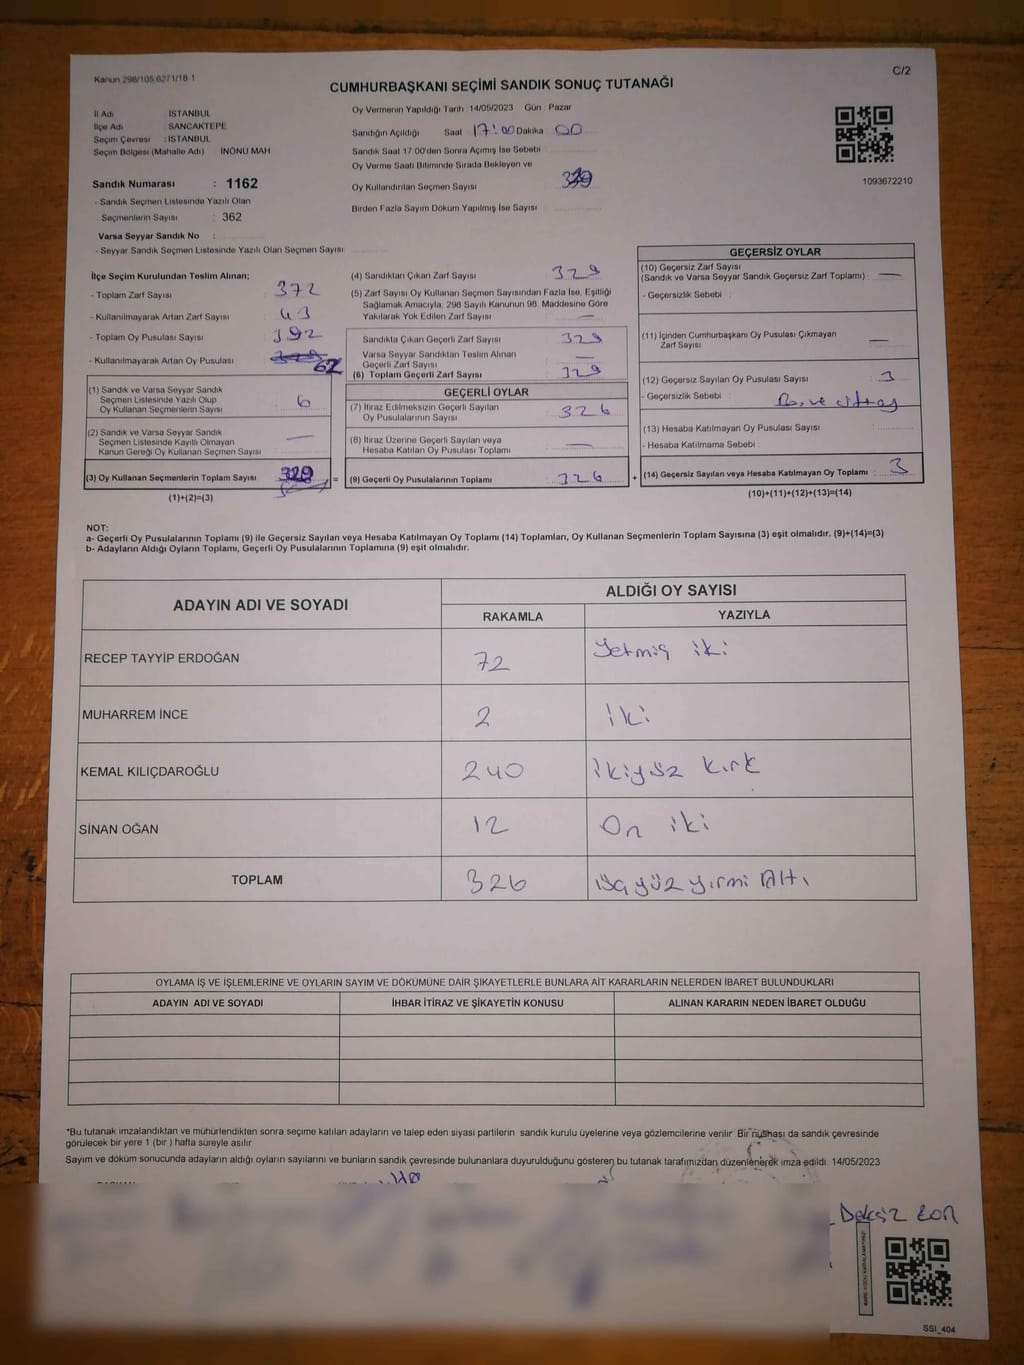 Kanun 298/105 6271/18-1
C/2
CUMHURBAŞKANI SEÇİMİ SANDIK SONUÇ TUTANAĞI
İl Adı : İSTANBUL
İlçe Adı : SANCAKTEPE
Seçim Çevresi : İSTANBUL
Seçim Bölgesi (Mahalle Adı) İNÖNÜ MAH
Sandık Numarası : 1162
- Sandık Seçmen Listesinde Yazılı Olan
Seçmenlerin Sayısı : 362
Varsa Seyyar Sandık No :
- Seyyar Sandık Seçmen Listesinde Yazılı Olan Seçmen Sayısı
Oy Vermenin Yapıldığı Tarih : 14/05/2023 Gün : Pazar
Sandığın Açıldığı Saat 17:00 Dakika 00
Sandık Saat 17:00'den Sonra Açımış İse Sebebi
Oy Verme Saati Bitiminde Sırada Bekleyen ve
Oy Kullandırılan Seçmen Sayısı
Birden Fazla Sayım Döküm Yapılmış İse Sayısı
1093672210
İlçe Seçim Kurulundan Teslim Alınan;
- Toplam Zarf Sayısı 372
- Kullanılmayarak Artan Zarf Sayısı 43
- Toplam Oy Pusulası Sayısı 392
- Kullanılmayarak Artan Oy Pusulası 62
(1) Sandık ve Varsa Seyyar Sandık
Seçmen Listesinde Yazılı Olup
Oy Kullanan Seçmenlerin Sayısı 6
(2) Sandık ve Varsa Seyyar Sandık
Seçmen Listesinde Kayıtlı Olmayan
Kanun Gereği Oy Kullanan Seçmen Sayısı —
(3) Oy Kullanan Seçmenlerin Toplam Sayısı 329 =
(1)+(2)=(3)
(4) Sandıktan Çıkan Zarf Sayısı 329
(5) Zarf Sayısı Oy Kullanan Seçmen Sayısından Fazla İse, Eşitliği
Sağlamak Amacıyla; 298 Sayılı Kanunun 98. Maddesine Göre
Yakılarak Yok Edilen Zarf Sayısı —
Sandıkta Çıkan Geçerli Zarf Sayısı 329
Varsa Seyyar Sandıktan Teslim Alınan
Geçerli Zarf Sayısı —
(6) Toplam Geçerli Zarf Sayısı 329
GEÇERLİ OYLAR
(7) İtiraz Edilmeksizin Geçerli Sayılan
Oy Pusulalarının Sayısı 326
(8) İtiraz Üzerine Geçerli Sayılan veya
Hesaba Katılan Oy Pusulası Toplamı —
(9) Geçerli Oy Pusulalarının Toplamı 326 +
GEÇERSİZ OYLAR
(10) Geçersiz Zarf Sayısı
(Sandık ve Varsa Seyyar Sandık Geçersiz Zarf Toplamı) : —
- Geçersizlik Sebebi :
(11) İçinden Cumhurbaşkanı Oy Pusulası Çıkmayan
Zarf Sayısı —
(12) Geçersiz Sayılan Oy Pusulası Sayısı 3
- Geçersizlik Sebebi :
(13) Hesaba Katılmayan Oy Pusulası Sayısı
- Hesaba Katılmama Sebebi :
(14) Geçersiz Sayılan veya Hesaba Katılmayan Oy Toplamı : 3
(10)+(11)+(12)+(13)=(14)
NOT:
a- Geçerli Oy Pusulalarının Toplamı (9) ile Geçersiz Sayılan veya Hesaba Katılmayan Oy Toplamı (14) Toplamları, Oy Kullanan Seçmenlerin Toplam Sayısına (3) eşit olmalıdır. (9)+(14)=(3)
b- Adayların Aldığı Oyların Toplamı, Geçerli Oy Pusulalarının Toplamına (9) eşit olmalıdır.
ADAYIN ADI VE SOYADI ALDIĞI OY SAYISI
RAKAMLA YAZIYLA
RECEP TAYYİP ERDOĞAN 72 Yetmiş iki
MUHARREM İNCE 2 iki
KEMAL KILIÇDAROĞLU 240 ikiyüz kırk
SİNAN OĞAN 12 On iki
TOPLAM 326 üçyüz yirmi Altı
OYLAMA İŞ VE İŞLEMLERİNE VE OYLARIN SAYIM VE DÖKÜMÜNE DAİR ŞİKAYETLERLE BUNLARA AİT KARARLARIN NELERDEN İBARET BULUNDUKLARI
ADAYIN ADI VE SOYADI İHBAR İTİRAZ VE ŞİKAYETİN KONUSU ALINAN KARARIN NEDEN İBARET OLDUĞU
*Bu tutanak imzalandıktan ve mühürlendikten sonra seçime katılan adayların ve talep eden siyasi partilerin sandık kurulu üyelerine veya gözlemcilerine verilir. Bir nüshası da sandık çevresinde
görülecek bir yere 1 (bir ) hafta süreyle asılır
Sayım ve döküm sonucunda adayların aldığı oyların sayılarını ve bunların sandık çevresinde bulunanlara duyurulduğunu gösteren bu tutanak tarafımızdan düzenlenerek imza edildi. 14/05/2023
SSI_404